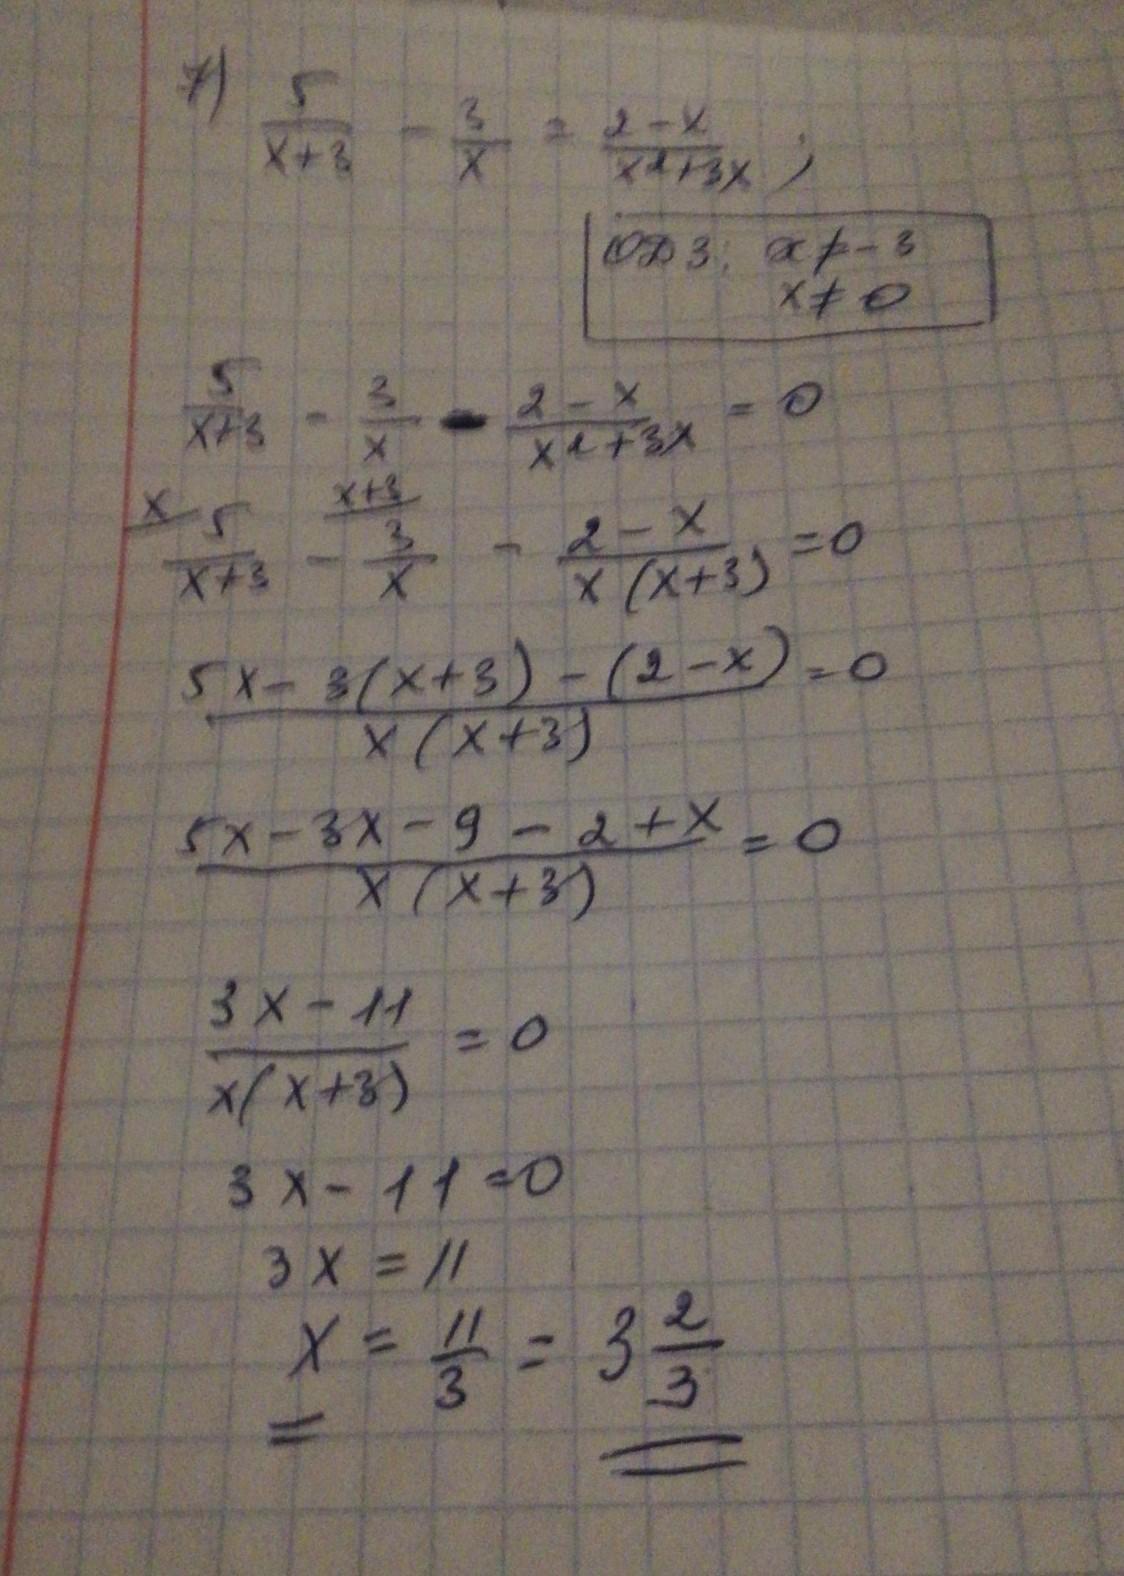 7) 5/(x+3) - 3/x = (2-x)/(x²+3x);
ОДЗ: x≠-3
x≠0
5/(x+3) - 3/x - (2-x)/(x²+3x) = 0
x/ 5/(x+3) - x+3/ 3/x - (2-x)/(x(x+3)) = 0
(5x-3(x+3)-(2-x))/(x(x+3)) = 0
(5x-3x-9-2+x)/(x(x+3)) = 0
(3x-11)/(x(x+3)) = 0
3x-11=0
3x=11
x = 11/3 = 3 2/3